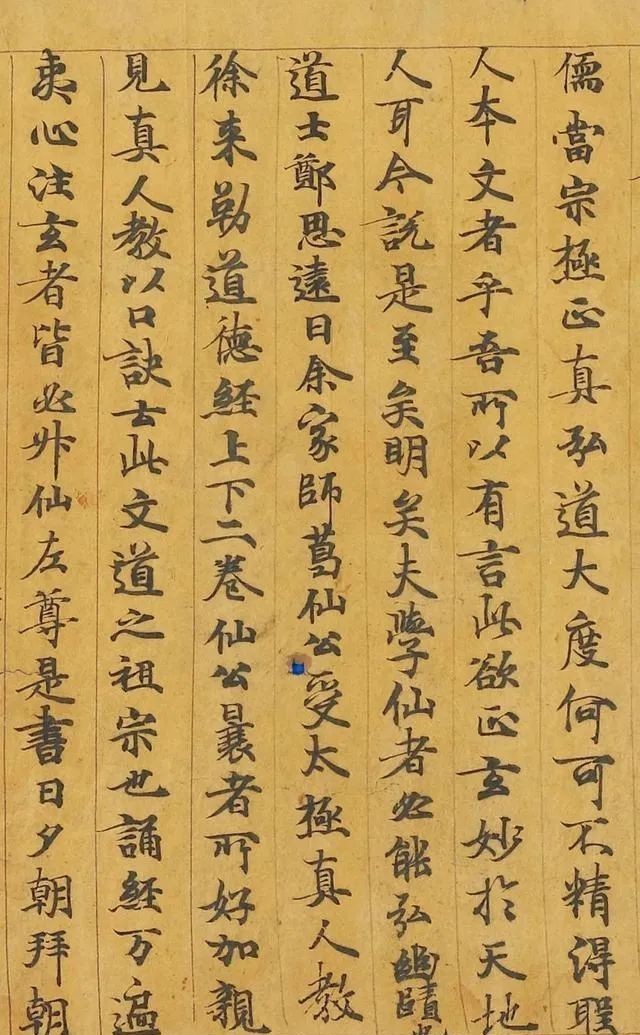 儒當宗極正真弘道大度何可不精得聖
人本文者乎吾所以有言此欲正玄妙於天地
人耳今説是至矣明矣夫學仙者必能弘幽賾
道士鄭思遠曰余家師葛仙公受太極真人教
徐来勒道徳經上下二卷仙公曩者所好加親
見真人教以口訣云此文道之祖宗也誦經万遍
夷心注玄者皆必升仙尤尊是書日夕朝拜朝